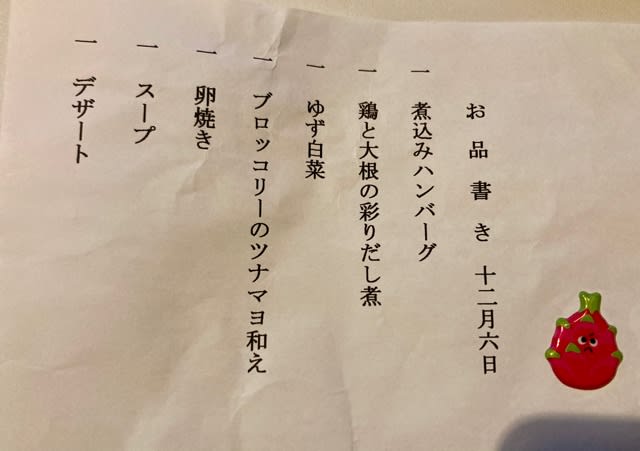 お品書き 十二月六日
一 煮込みハンバーグ
一 鶏と大根の彩りだし煮
一 ゆず白菜
一 ブロッコリーのツナマヨ和え
一 卵焼き
一 スープ
一 デザート